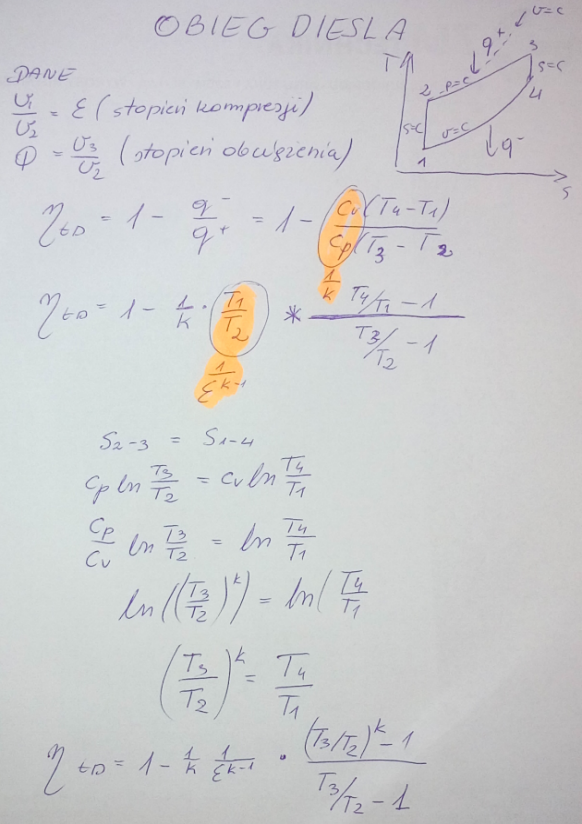 OBIEG DIESLA
v=c
q⁺
3
T
s=c
DANE
2
p=c
4
v₁/v₂ = ε (stopień kompresji)
s=c
v=c
1
q⁻
φ = v₃/v₂ (stopień obciążenia)
s
η_tD = 1 - q⁻/q⁺ = 1 - cv(T₄-T₁)/cp(T₃ - T₂
1/k
η_tD = 1 - 1/k · T₁/T₂ * (T₄/T₁ - 1)/(T₃/T₂ - 1)
1/ε^(k-1)
S₂₋₃ = S₁₋₄
cp ln T₃/T₂ = cv ln T₄/T₁
cp/cv ln T₃/T₂ = ln T₄/T₁
ln((T₃/T₂)^k) = ln(T₄/T₁
(T₃/T₂)^k = T₄/T₁
η_tD = 1 - 1/k 1/ε^(k-1) · ((T₃/T₂)^k - 1)/(T₃/T₂ - 1)